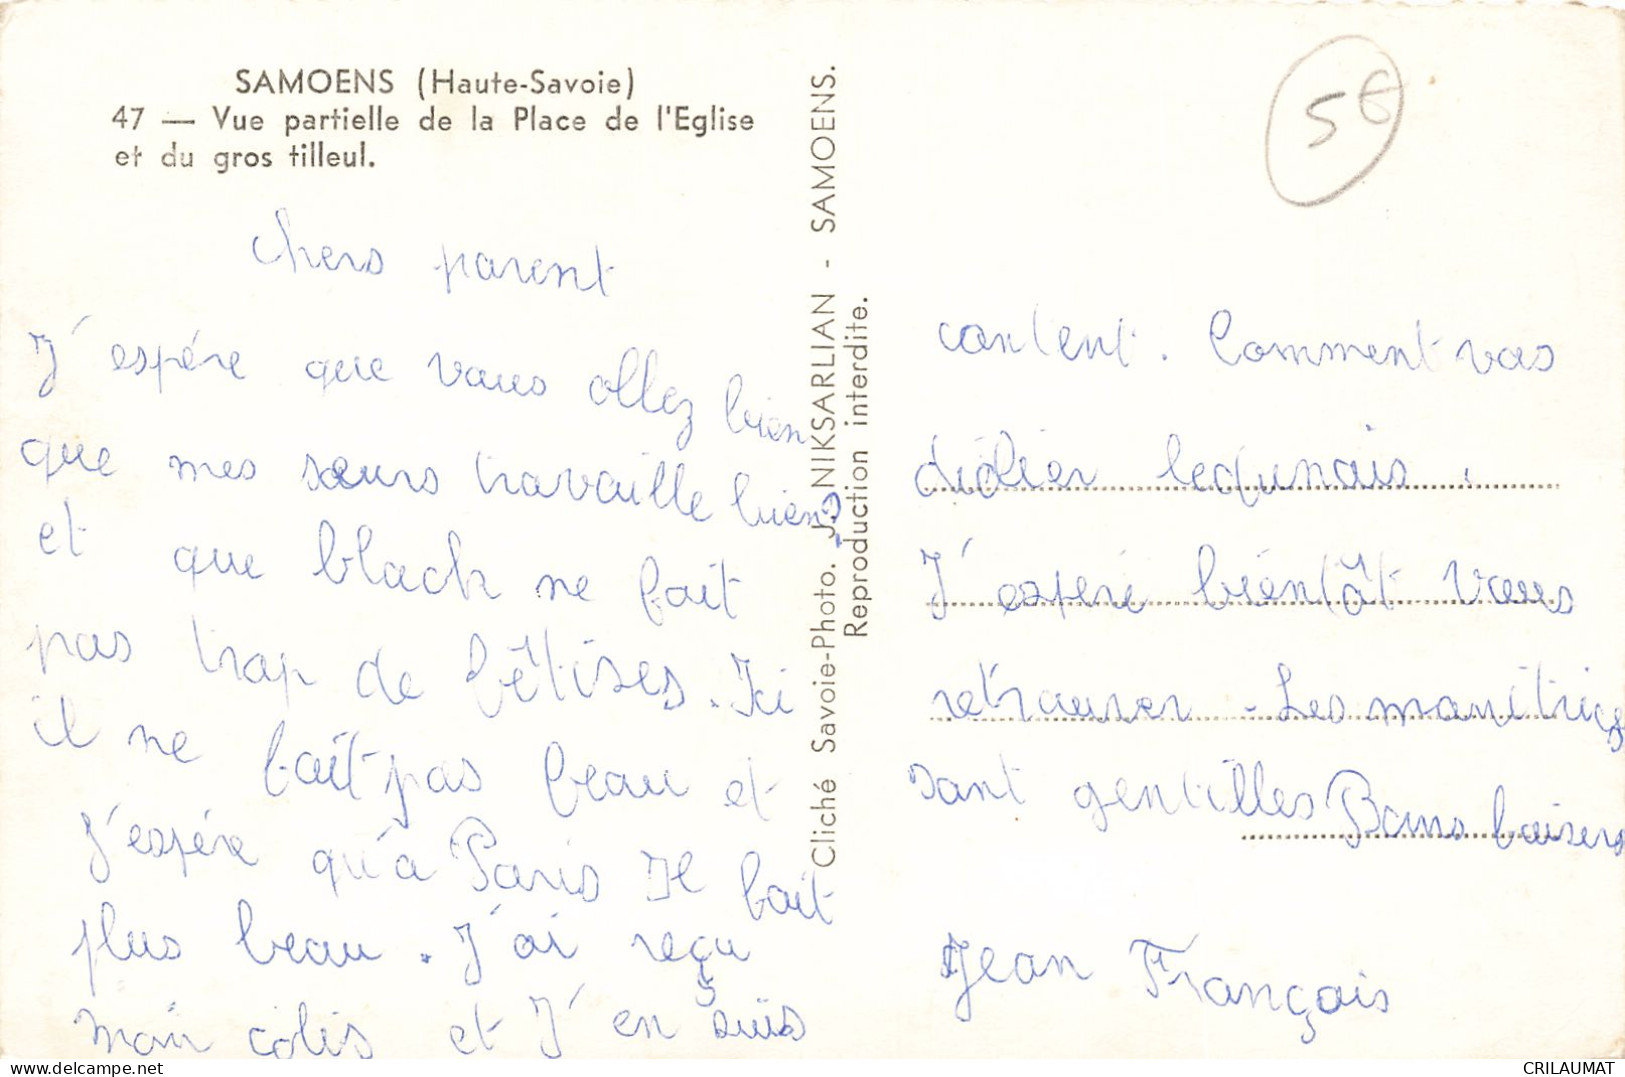 SAMOENS (Haute-Savoie)
47 — Vue partielle de la Place de l'Eglise
et du gros tilleul.
chers parent
J'espére que vous allez bien
que mes sœurs travaille bien
et que black ne fait
pas trop de bêtises. Ici
il ne fait pas beau et
J'espére qu'a Paris Il fait
plus beau. J'ai reçu
mon colis et J'en suis
Cliché Savoie-Photo. J. NIKSARLIAN - SAMOENS.
Reproduction interdite.
5€
content. Comment vas
didier
J'espére bientôt vous
retrouver - Les monitrices
sont gentilles Bons baisers
Jean François
delcampe.net
CRILAUMAT